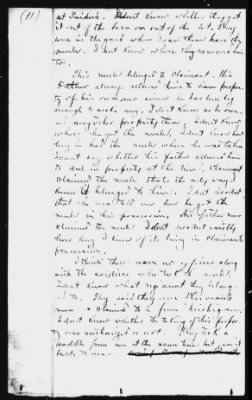 (11)
at Snider's. I don't know whether they got
it out of the barn or out of the lot. They
were in the yard when I saw them have the
mule. I don't know where they removed him
to.
This mule belonged to Claimant. His
Father always allowed him to have proper-
ty of his own ever since he has been big
enough to work any. I don't know as to his
own any other property then, I don't know
where he got the mule. I don't know how
long he had the mule when he was taken.
Cannot say whether his father allowed him
to deal in property when he was. Claimant
claimed the mule that's the only way I
knew it belonged to him. I don't recollect
that he ever told me how he got the
mule in his possession. His father never
claimed the mule. I don't recollect exactly
how long I knew of its being in Claimant's
possession.
I think there were no officers along
with the soldiers who took the mule.
I don't know what regiment they belong-
ed to. They said they were Sherman's
men & claimed to be from Michigan.
I don't know whether the taking of this proper-
ty was unauthorized or not. They took a
saddle from me at the same time but gave it
back to me.